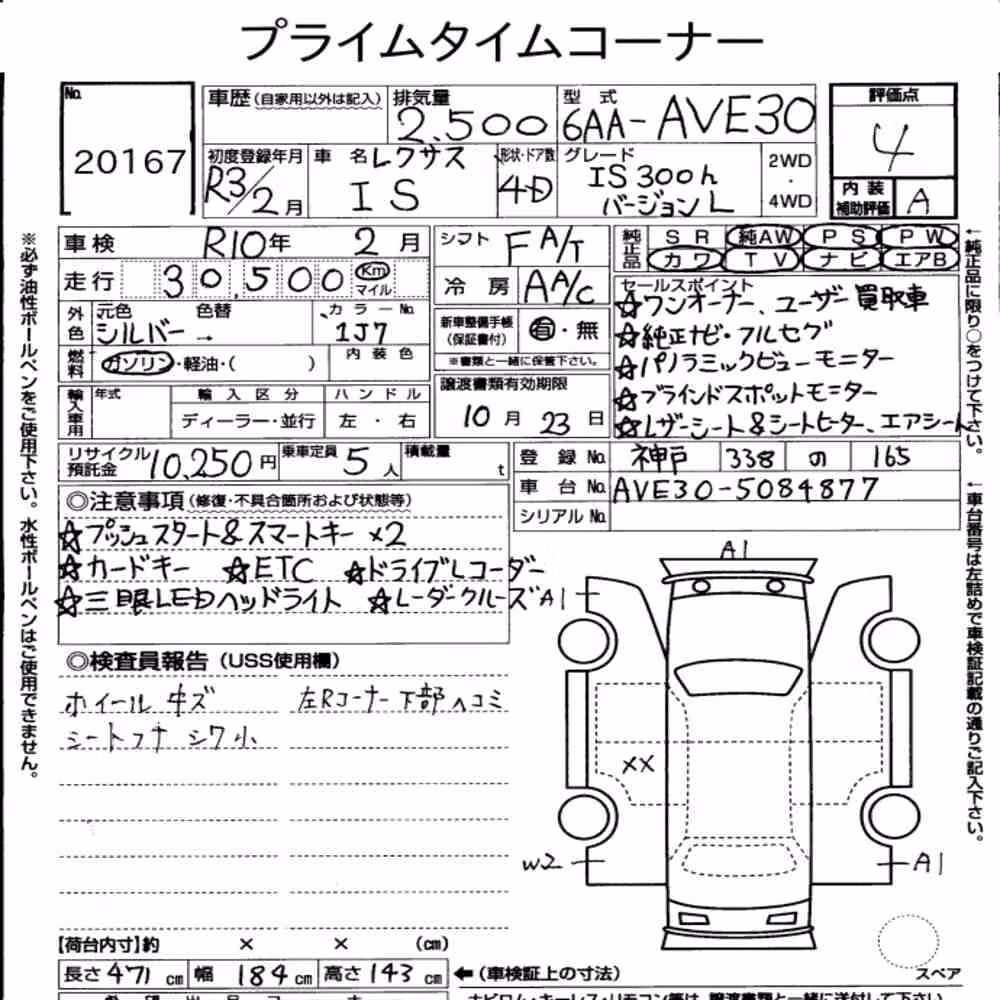 プライムタイムコーナー
No. 20167
車歴 (自家用以外は記入)
排気量 2,500
型式 6AA-AVE30
評価点 4
初度登録年月 R3/2月
車名 レクサス IS
形状・ドア数 4D
グレード IS300h バージョンL
2WD・4WD
内装補助評価 A
車検 R10年 2月
シフト F A/T
純正品 SR 純AW PS PW
カワ TV ナビ エアB
走行 30,500 Km マイル
冷房 AA/C
セールスポイント
☆ワンオーナー、ユーザー買取車
☆純正ナビ・フルセグ
☆パノラミックビューモニター
☆ブラインドスポットモニター
☆レザーシート&シートヒーター、エアシート
外色 元色 シルバー → 色替 カラーNo. 1J7
新車整備手帳(保証書付) 有・無
※書類と一緒に保管下さい。
燃料 ガソリン・軽油・( ) 内装色
譲渡書類有効期限 10月23日
輸入車用 年式 輸入区分 ハンドル
ディーラー・並行 左・右
リサイクル預託金 10,250円 乗車定員 5人 積載量 t
登録No. 神戸 338 の 165
車台No. AVE30-5084877
シリアルNo.
◎注意事項(修復・不具合箇所および状態等)
☆プッシュスタート&スマートキー ×2
☆カードキー ☆ETC ☆ドライブレコーダー
☆三眼LEDヘッドライト ☆レーダークルーズ
◎検査員報告(USS使用欄)
ホイールキズ 左Rコーナー下部ヘコミ
シートコナ シワ小
A1
A1
××
W2
A1
スペア
【荷台内寸】約 × × (cm)
長さ 471cm 幅 184cm 高さ 143cm ←(車検証上の寸法)
※必ず油性ボールペンをご使用下さい。水性ボールペンはご使用できません。
←純正品に限り○をつけて下さい。
←車台番号は左詰めで車検証記載の通りご記入下さい。